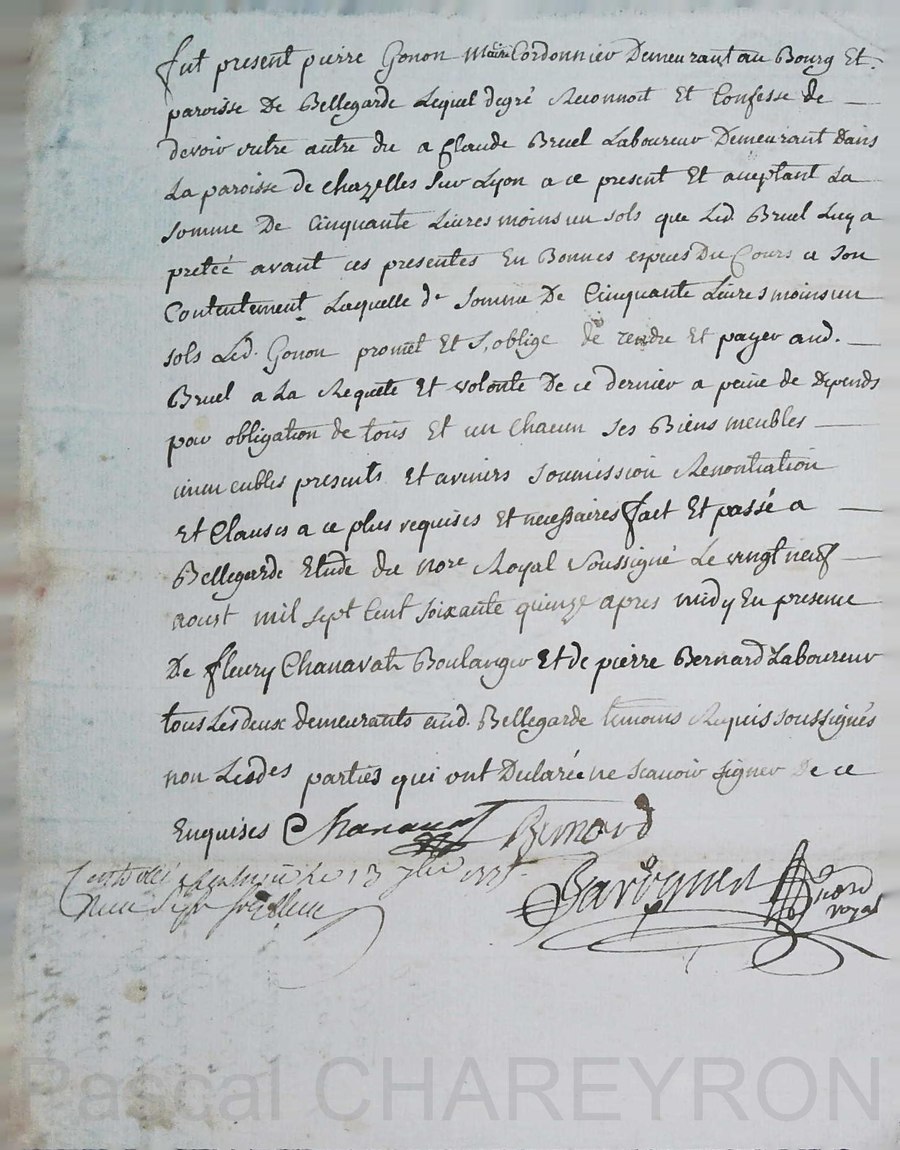 fut present pierre Gonon Maitre Cordonnier Demeurant au Bourg Et
paroisse De Bellegarde Lequel degré Reconnoit Et Confesse de
devoir outre autre du a Claude Bruel Laboureur Demeurant Dans
La paroisse de chazelles sur Lyon a ce present Et aceptant La
somme De Cinquante Livres moins un sols que Led. Bruel Luy a
pretéé avant ces presentes En Bonnes especes Du Cours a son
Contentement Laquelle de somme De Cinquante Livres moins un
sols Led. Gonon promet Et s'oblige de rendre Et payer aud.
Bruel a La Requete Et volonte De ce dernier a peine de Depends
pour obligation de tous Et un Chacun ses Biens meubles
immeubles presents Et avenirs soumission Renontiation
Et Clauses a ce plus requises Et necessaires fait Et passé a
Bellegarde Etude du nore Royal soussigné Le vingt neuf
aoust mil sept Cent soixante quinze apres midy En presence
De fleury Chanavat Boulanger Et de pierre Bernard Laboureur
tous Les deux demeurants aud. Bellegarde temoins Requis soussignés
non Lesdes parties qui ont Declarée ne scavoir signer De ce
Enquises Chanavat Bernard
nore
royal
Pascal CHAREYRON